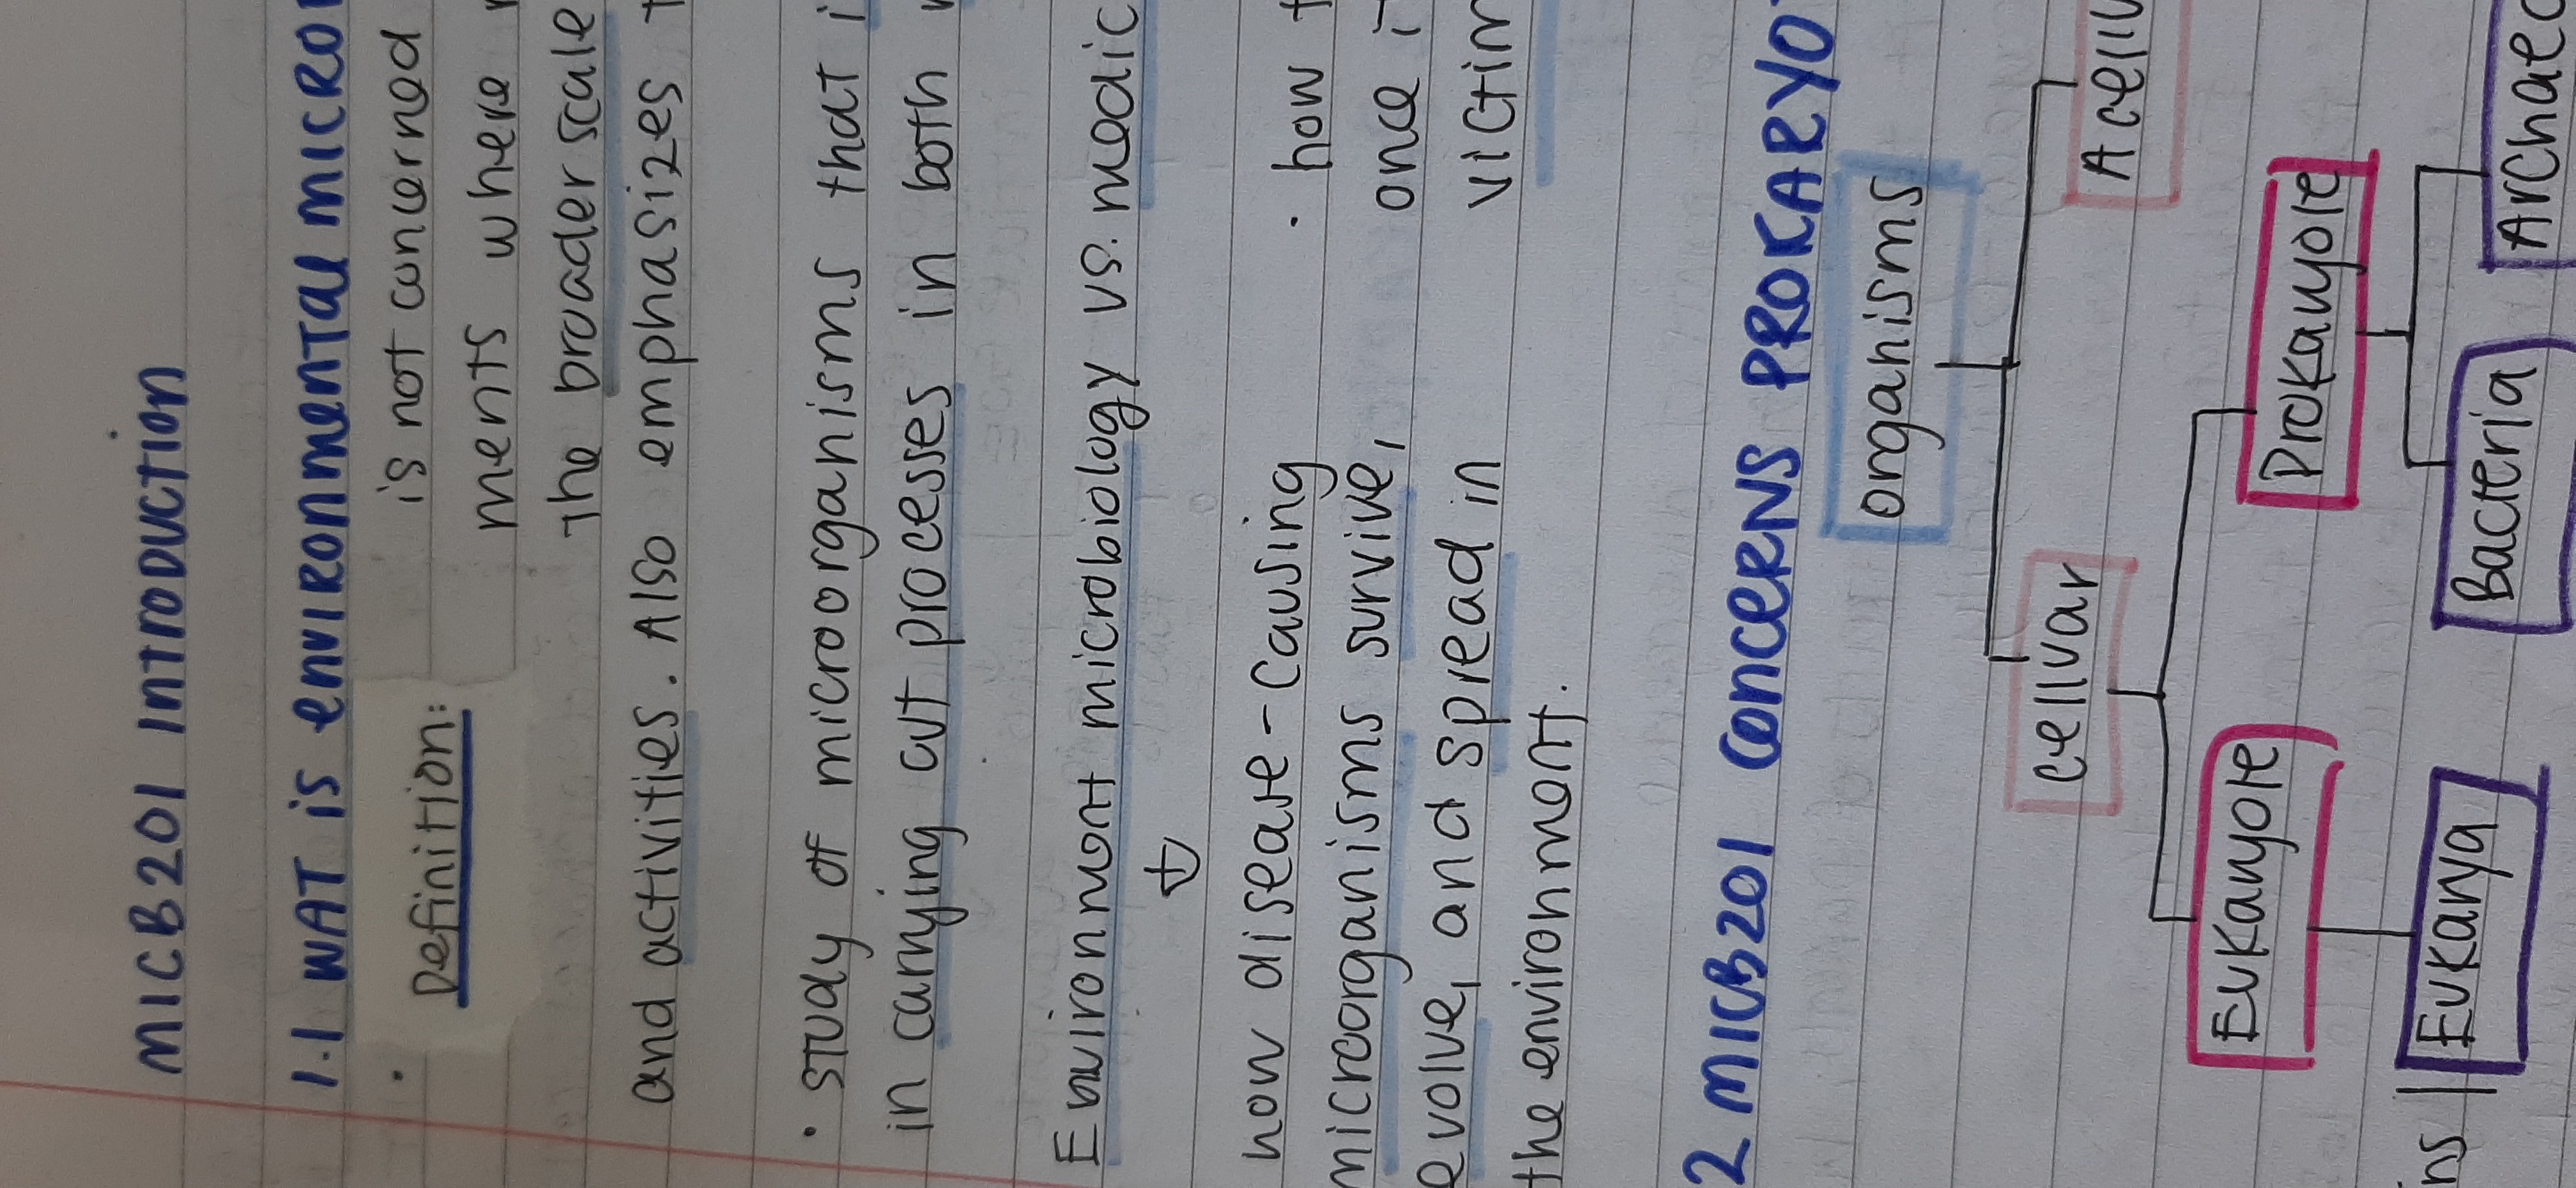 MICB201 INTRODUCTION
1.1 WAT is environmental MICRO
• Definition: is not concerned
ments where
The broader scale
and activities. Also emphasizes
• study of microorganisms that
in carrying out processes in both
Environment microbiology vs. medic
how disease-causing
• how
microorganisms survive,
once
evolve, and spread in
victim
the environment.
2 MICB201 CONCERNS PROKARYO
organisms
cellular
Acellu
Eukaryote
Prokaryote
ns | Eukarya
Bacteria
Archaea